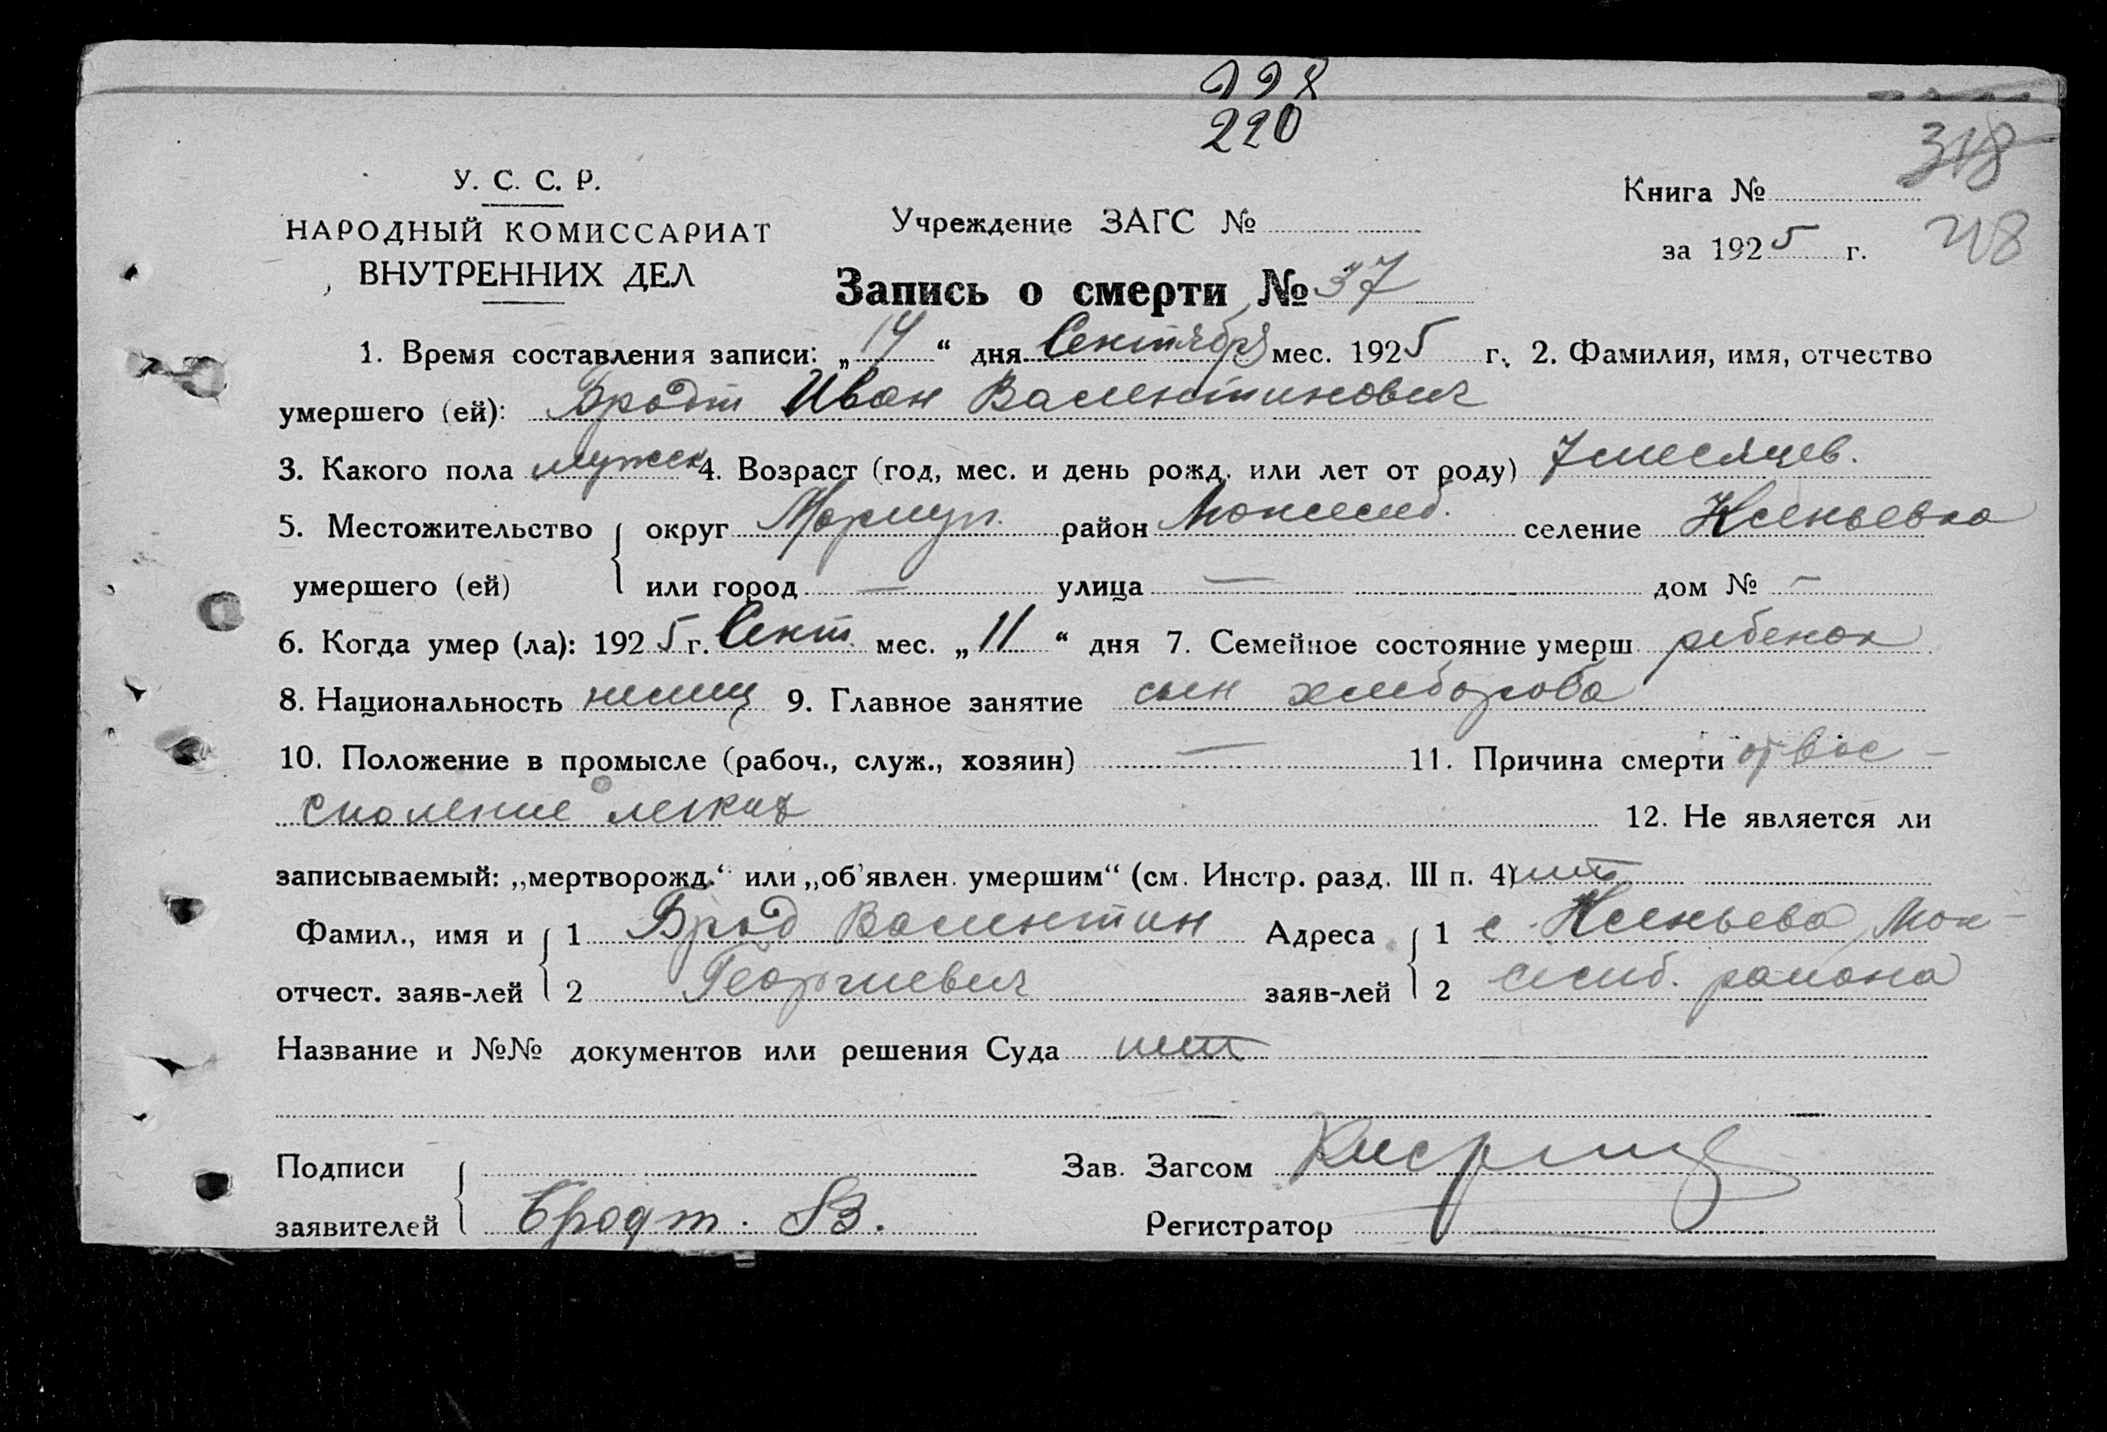 198
220
318
У. С. С. Р.
НАРОДНЫЙ КОМИССАРИАТ
ВНУТРЕННИХ ДЕЛ
Учреждение ЗАГС №
Книга №
за 1925 г.
Запись о смерти № 37
1. Время составления записи: „14“ дня Сентября мес. 1925 г. 2. Фамилия, имя, отчество
умершего (ей): Бродт Иван Валентинович
3. Какого пола мужск 4. Возраст (год, мес. и день рожд. или лет от роду) 7 месяцев.
5. Местожительство умершего (ей) округ Мариуп. район селение Ксеньевка
или город — улица — дом № —
6. Когда умер (ла): 1925 г. Сент. мес. „11“ дня 7. Семейное состояние умерш ребенок
8. Национальность немец 9. Главное занятие сын хлебороба
10. Положение в промысле (рабоч., служ., хозяин) — 11. Причина смерти от вос-
споление легких
12. Не является ли
записываемый: „мертворожд.“ или „об'явлен. умершим“ (см. Инстр. разд. III п. 4) нет
Фамил., имя и отчест. заяв-лей 1 Брод Валентин Адреса заяв-лей 1 с. Ксеньева
2 Георгиевич 2 района
Название и №№ документов или решения Суда нет
Подписи Зав. Загсом
заявителей Бродт. В. Регистратор